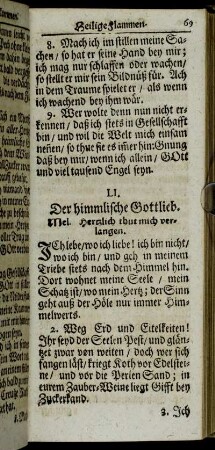 Heilige Flammen. 69
8. Mach ich im stillen meine Sa-
chen / so hat er seine Hand bey mir;
ich mag nur schlaffen oder wachen/
so stellt er mir sein Bildnüß für. Ach
in dem Traume spielet er / als wenn
ich wachend bey ihm wär.
9. Wer wolte denn nun nicht er-
kennen / daß ich stets in Gesellschafft
bin / und wil die Welt mich einsam
nennen/ so thue sie es immer hin: Gnung
daß bey mir / wenn ich allein / GOtt
und viel tausend Engel seyn.
LI.
Der himmlische Gottlieb.
Mel. Hertzlich thut mich ver-
langen.
Ich lebe / wo ich liebe! ich bin nicht/
wo ich bin / und geh in meinem
Triebe stets nach dem Himmel hin.
Dort wohnet meine Seele / mein
Schatz ist / wo mein Hertz; der Sinn
geht auß der Höle nur immer Him-
melwerts.
2. Weg Erd und Eitelkeiten!
Ihr seyd der Seelen Pest / und glän-
tzet zwar von weiten / doch wer sich
fangen läst/ kriegt Koth vor Edelstei-
ne / und vor die Perlen Sand; in
eurem Zauber-Weine liegt Gifft bey
Zuckerkand.
3. Ich